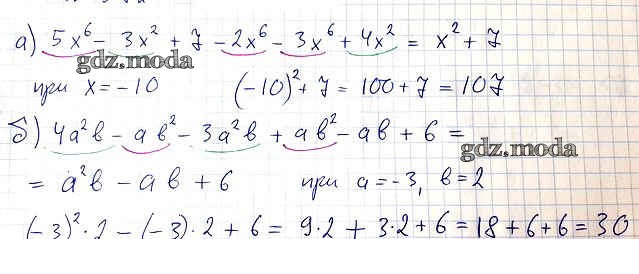 а) 5x⁶ - 3x² + 7 - 2x⁶ - 3x⁶ + 4x² = x² + 7
gdz.moda
при x = -10 (-10)² + 7 = 100 + 7 = 107
б) 4a²b - ab² - 3a²b + ab² - ab + 6 =
gdz.moda
= a²b - ab + 6 при a = -3, b = 2
(-3)² · 2 - (-3) · 2 + 6 = 9·2 + 3·2 + 6 = 18 + 6 + 6 = 30